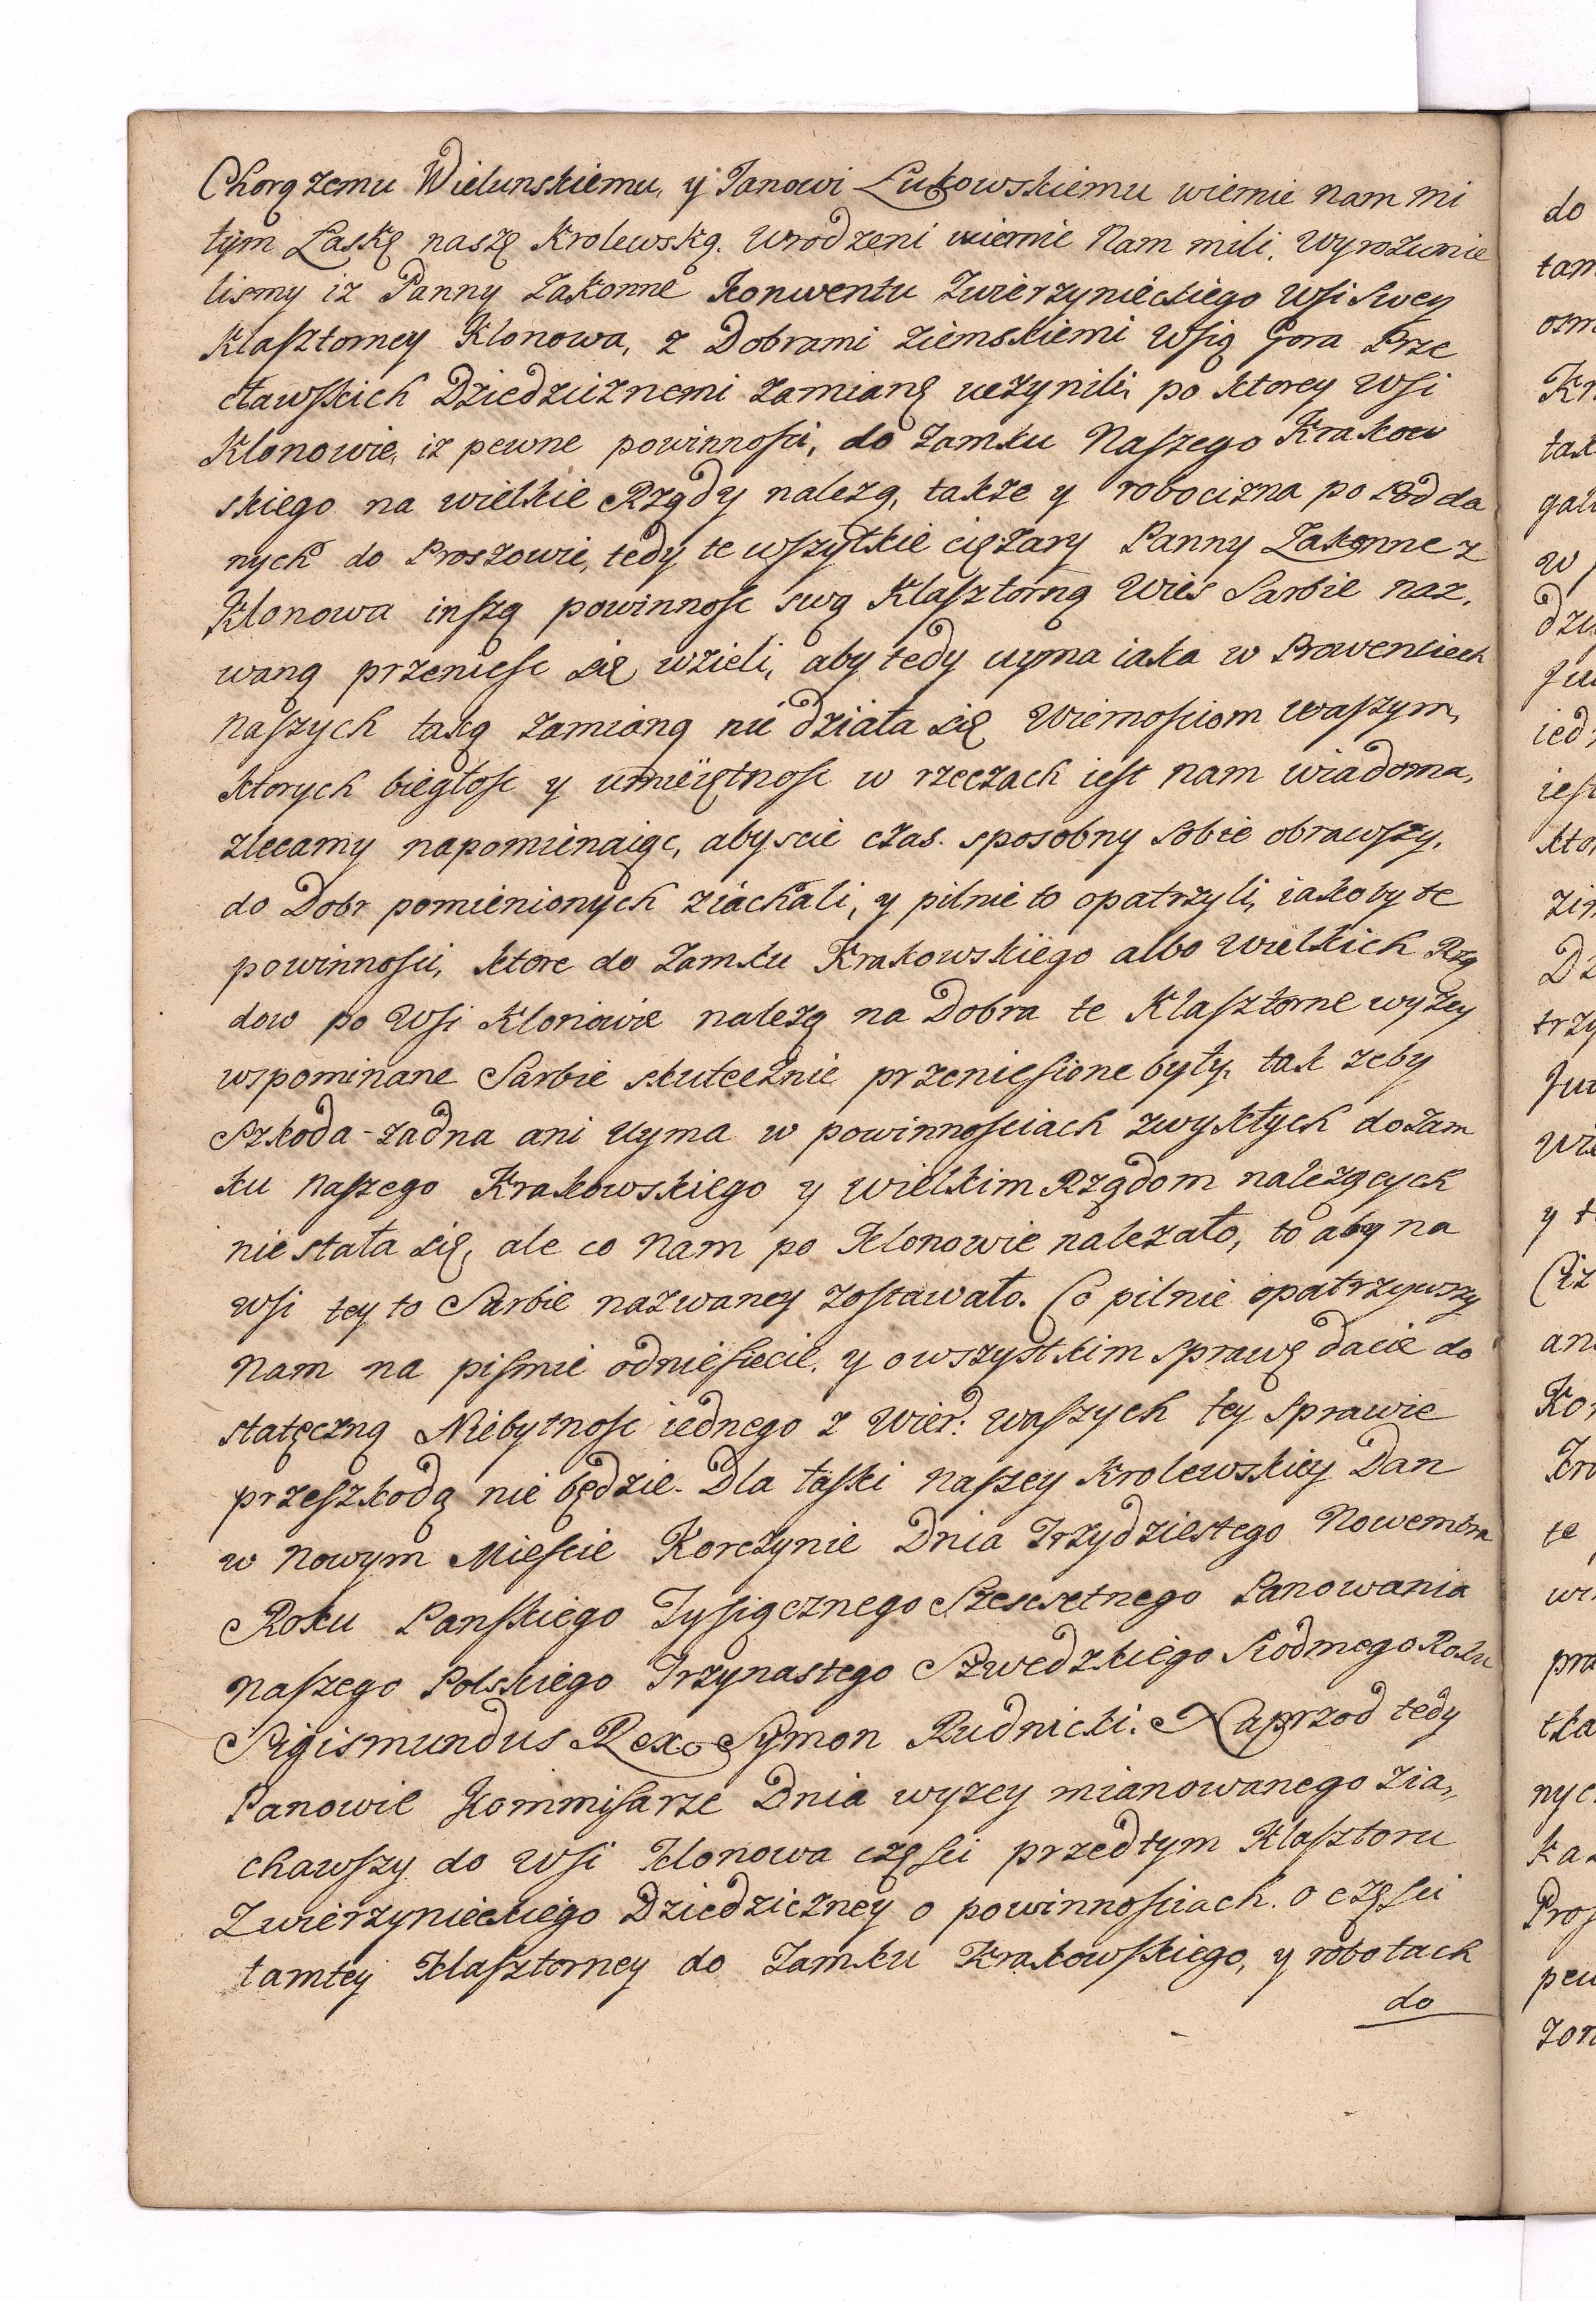 Chorążemu Wielunskiemu, y Janowi Łukowskiemu wiernie nam mi
łym Łaskę naszę Krolewską. Urodzeni wiernie Nam mili, Wyrozumie
lismy iz Panny Zakonne Konwentu Zwierzynieckiego Wsi swey
Klasztorney Klonowa, z Dobrami Ziemskiemi Wsią Gora Prze
cławskich Dziedzicznemi zamianę uczynili, po ktorey Wsi
Klonowie, iz pewne powinnosci, do Zamku Naszego Krakow
skiego na wielkie Rządy nalezą, takze y robocizna po
nych do Proszowic, tedy te wszytkie ciężary Panny Zakonne z
Klonowa inszą powinnosc swą Klasztorną Wies Sarbie naz,
waną przeniesc się wzieli, aby tedy uyma iaka w Prowenciech
naszych taką zamianą nie działa się Wiernosciom waszym,
ktorych biegłosc y umieiętnosc w rzeczach iest nam wiadoma,
zlecamy napominaiąc, abyscie czas. sposobny sobie obrawszy,
do Dobr pomienionych ziachali, y pilnie to opatrzyli, iakoby te
powinnosci, ktore do Zamku Krakowskiego albo Wielkich Rzą
dow po Wsi Klonowie nalezą na Dobra te Klasztorne wyzey
wspominane Sarbie skutecznie przeniesione były, tak zeby
Szkoda-zadna ani Uyma w powinnosciach zwykłych do Zam
ku naszego Krakowskiego y wielkim Rządom nalezących
nie stała się, ale co Nam po Klonowie nalezało, to aby na
Wsi tey to Sarbie nazwaney zostawało. Co pilnie opatrzywszy
Nam na pismie odniesiecie, y o wszystkim sprawę dacie do
statęczną Niebytnosc iednego z Wier: waszych tey sprawie
przeszkodą nie będzie. Dla łaski naszey Krolewskiey Dan
w Nowym Miescie Korczynie Dnia Trzydziestego Nowembra
Roku Panskiego Tysiącznego Szescsetnego Panowania
naszego Polskiego Trzynastego Szwedzkiego Siodmego Roku
Sigismundus Rex. Symon Rudnicki. Naprzod tedy
Panowie Kommisarze Dnia wyzey mianowanego zia,
chawszy do Wsi Klonowa częsci przedtym Klasztoru
Zwierzynieckiego Dziedziczney o powinnosciach. o częsci
tamtey Klasztorney do Zamku Krakowskiego, y robotach
do